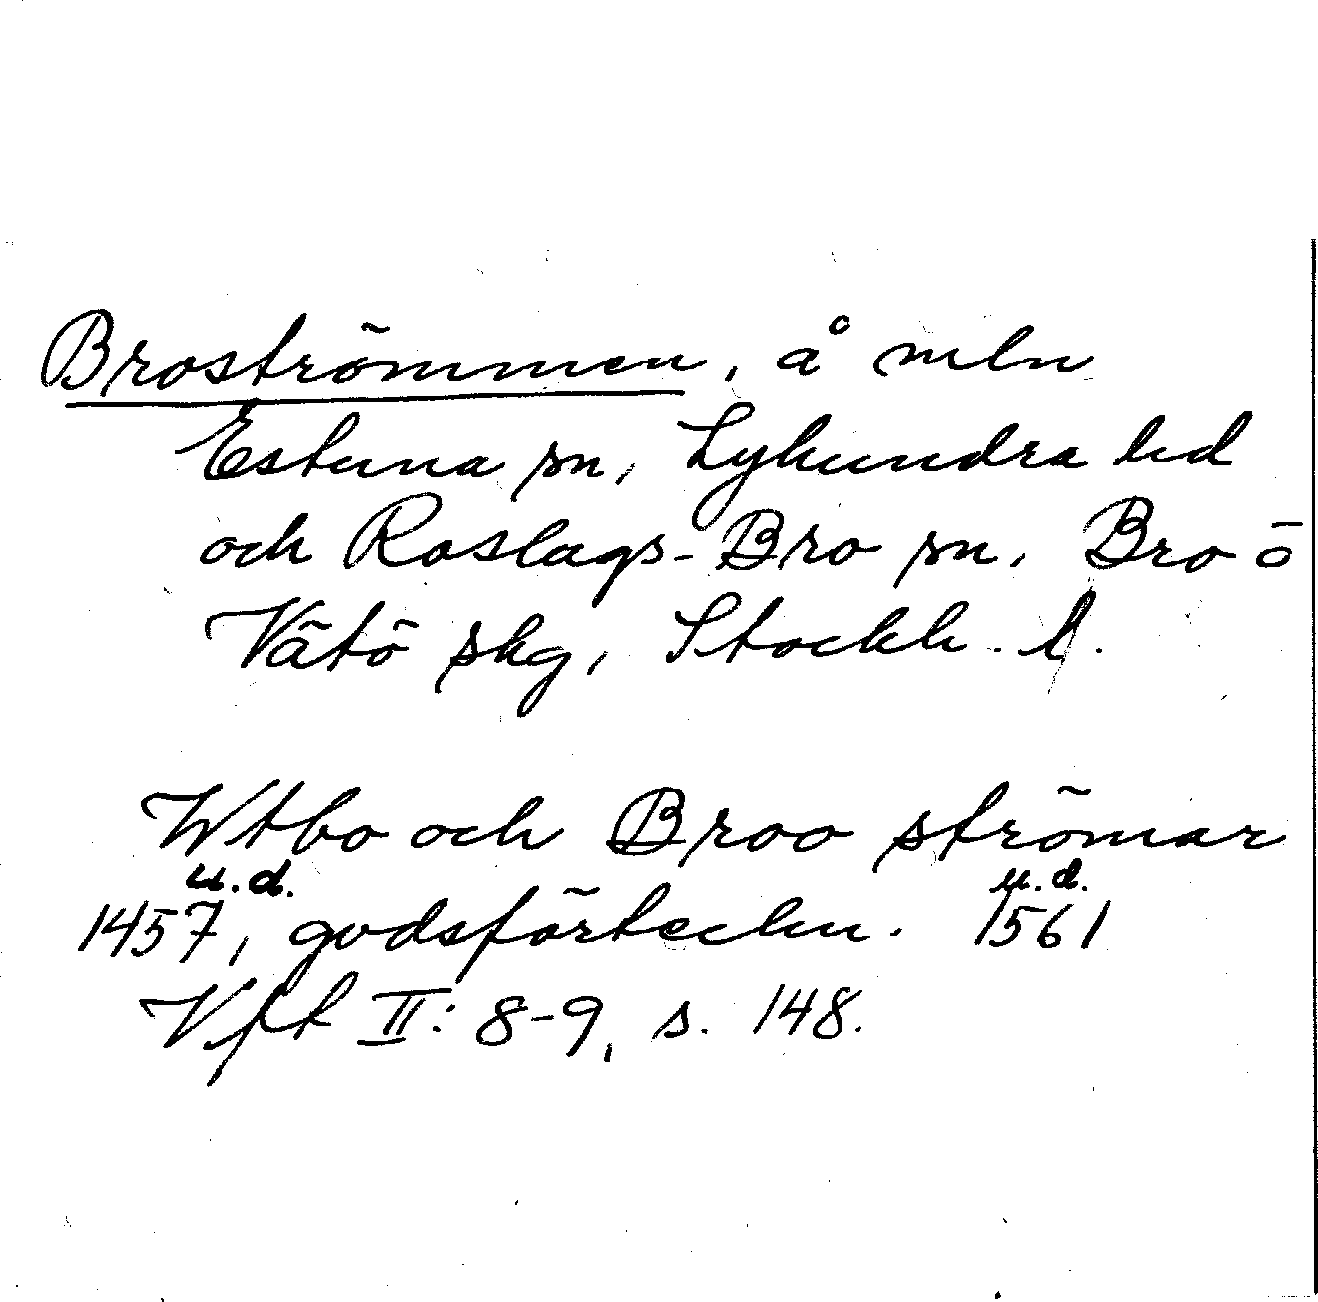 Broströmmen, å mln
Estuna sn, Lyhundra hd
och Roslags-Bro sn, Bro o
Vätö skg, Stockh. l.
Wtbo och Broo strömar
u.d. u.d.
1457, godsförteckn. 1561
Vfl II: 8-9, s. 148.